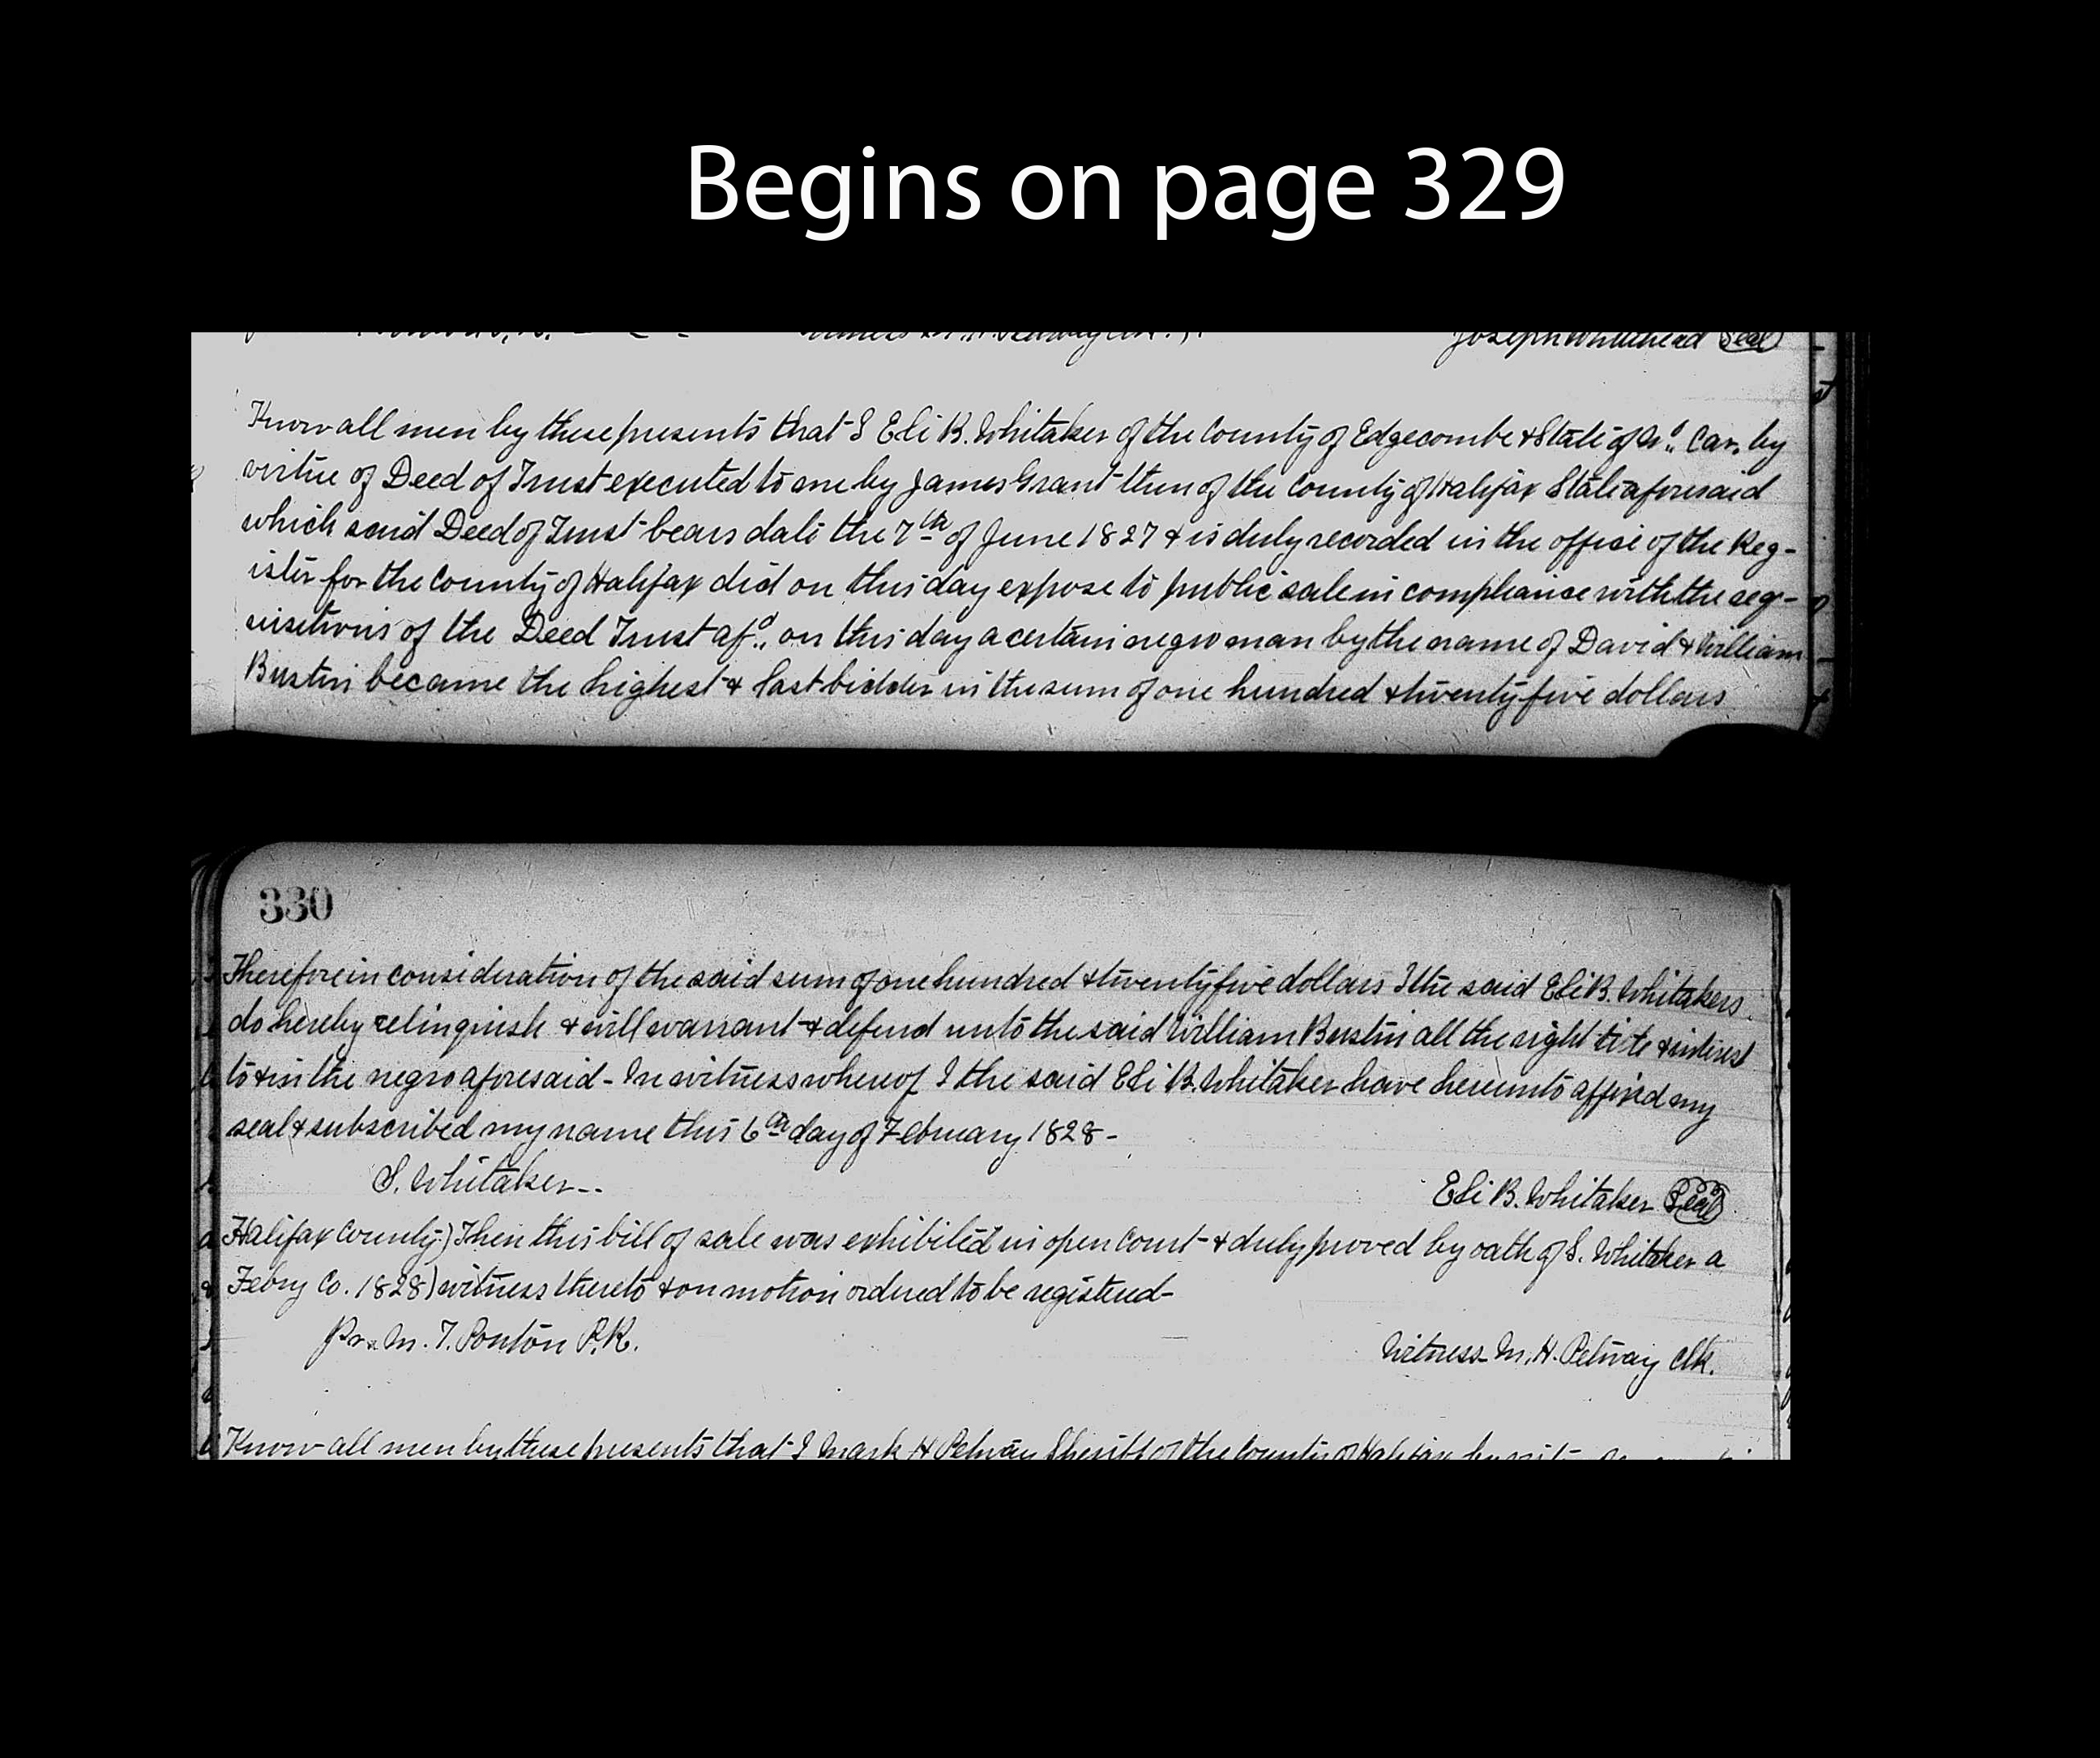 Begins on page 329
Joseph Whitehead Seal
Know all men by these presents that I Eli B. Whitaker of the County of Edgecombe & State of No. Car. by
virtue of Deed of Trust executed to me by James Grant then of the County of Halifax State aforesaid
which said Deed of Trust bears date the 7th of June 1827 & is duly recorded in the office of the Reg-
ister for the County of Halifax did on this day expose to public sale in compliance with the req-
uisitions of the Deed Trust afd. on this day a certain negro man by the name of David & William
Bustin became the highest & last bidder in the sum of one hundred & twenty five dollars
330
Therefore in consideration of the said sum of one hundred & twenty five dollars I the said Eli B. Whitakers
do hereby relinquish & will warrant & defend unto the said William Bustin all the right & interest
to & in the negro aforesaid - In witness whereof I the said Eli B. Whitaker have hereunto affixed my
seal & subscribed my name this 6th day of February 1828 -
S. Whitaker --
Eli B. Whitaker Seal
Halifax County) Then this bill of sale was exhibited in open Court & duly proved by oath of S. Whitaker a
Febry Co. 1828) witness thereto & on motion ordered to be registered -
Pr. M. T. Ponton P.R.
Witness M. H. Petway Clk.
Know all men by these presents that I Mark H Petway Sheriff of the County of Halifax by